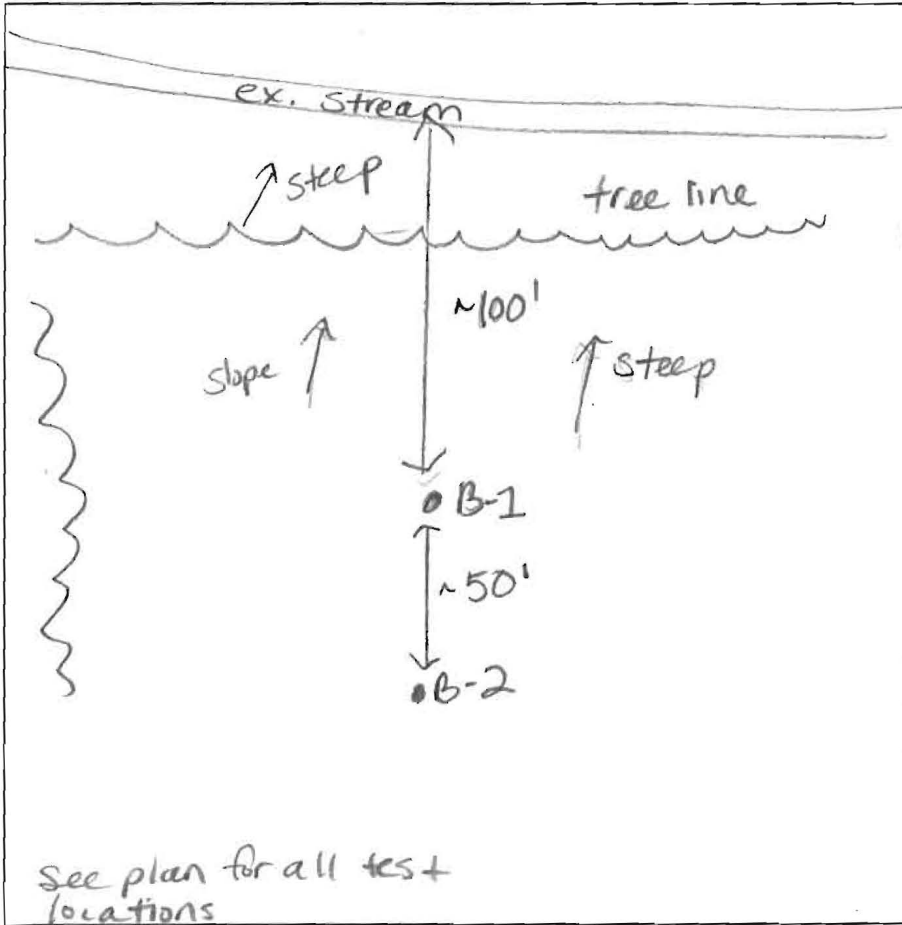 ex. stream
steep
tree line
~100'
slope
steep
B-1
~50'
B-2
see plan for all test
locations